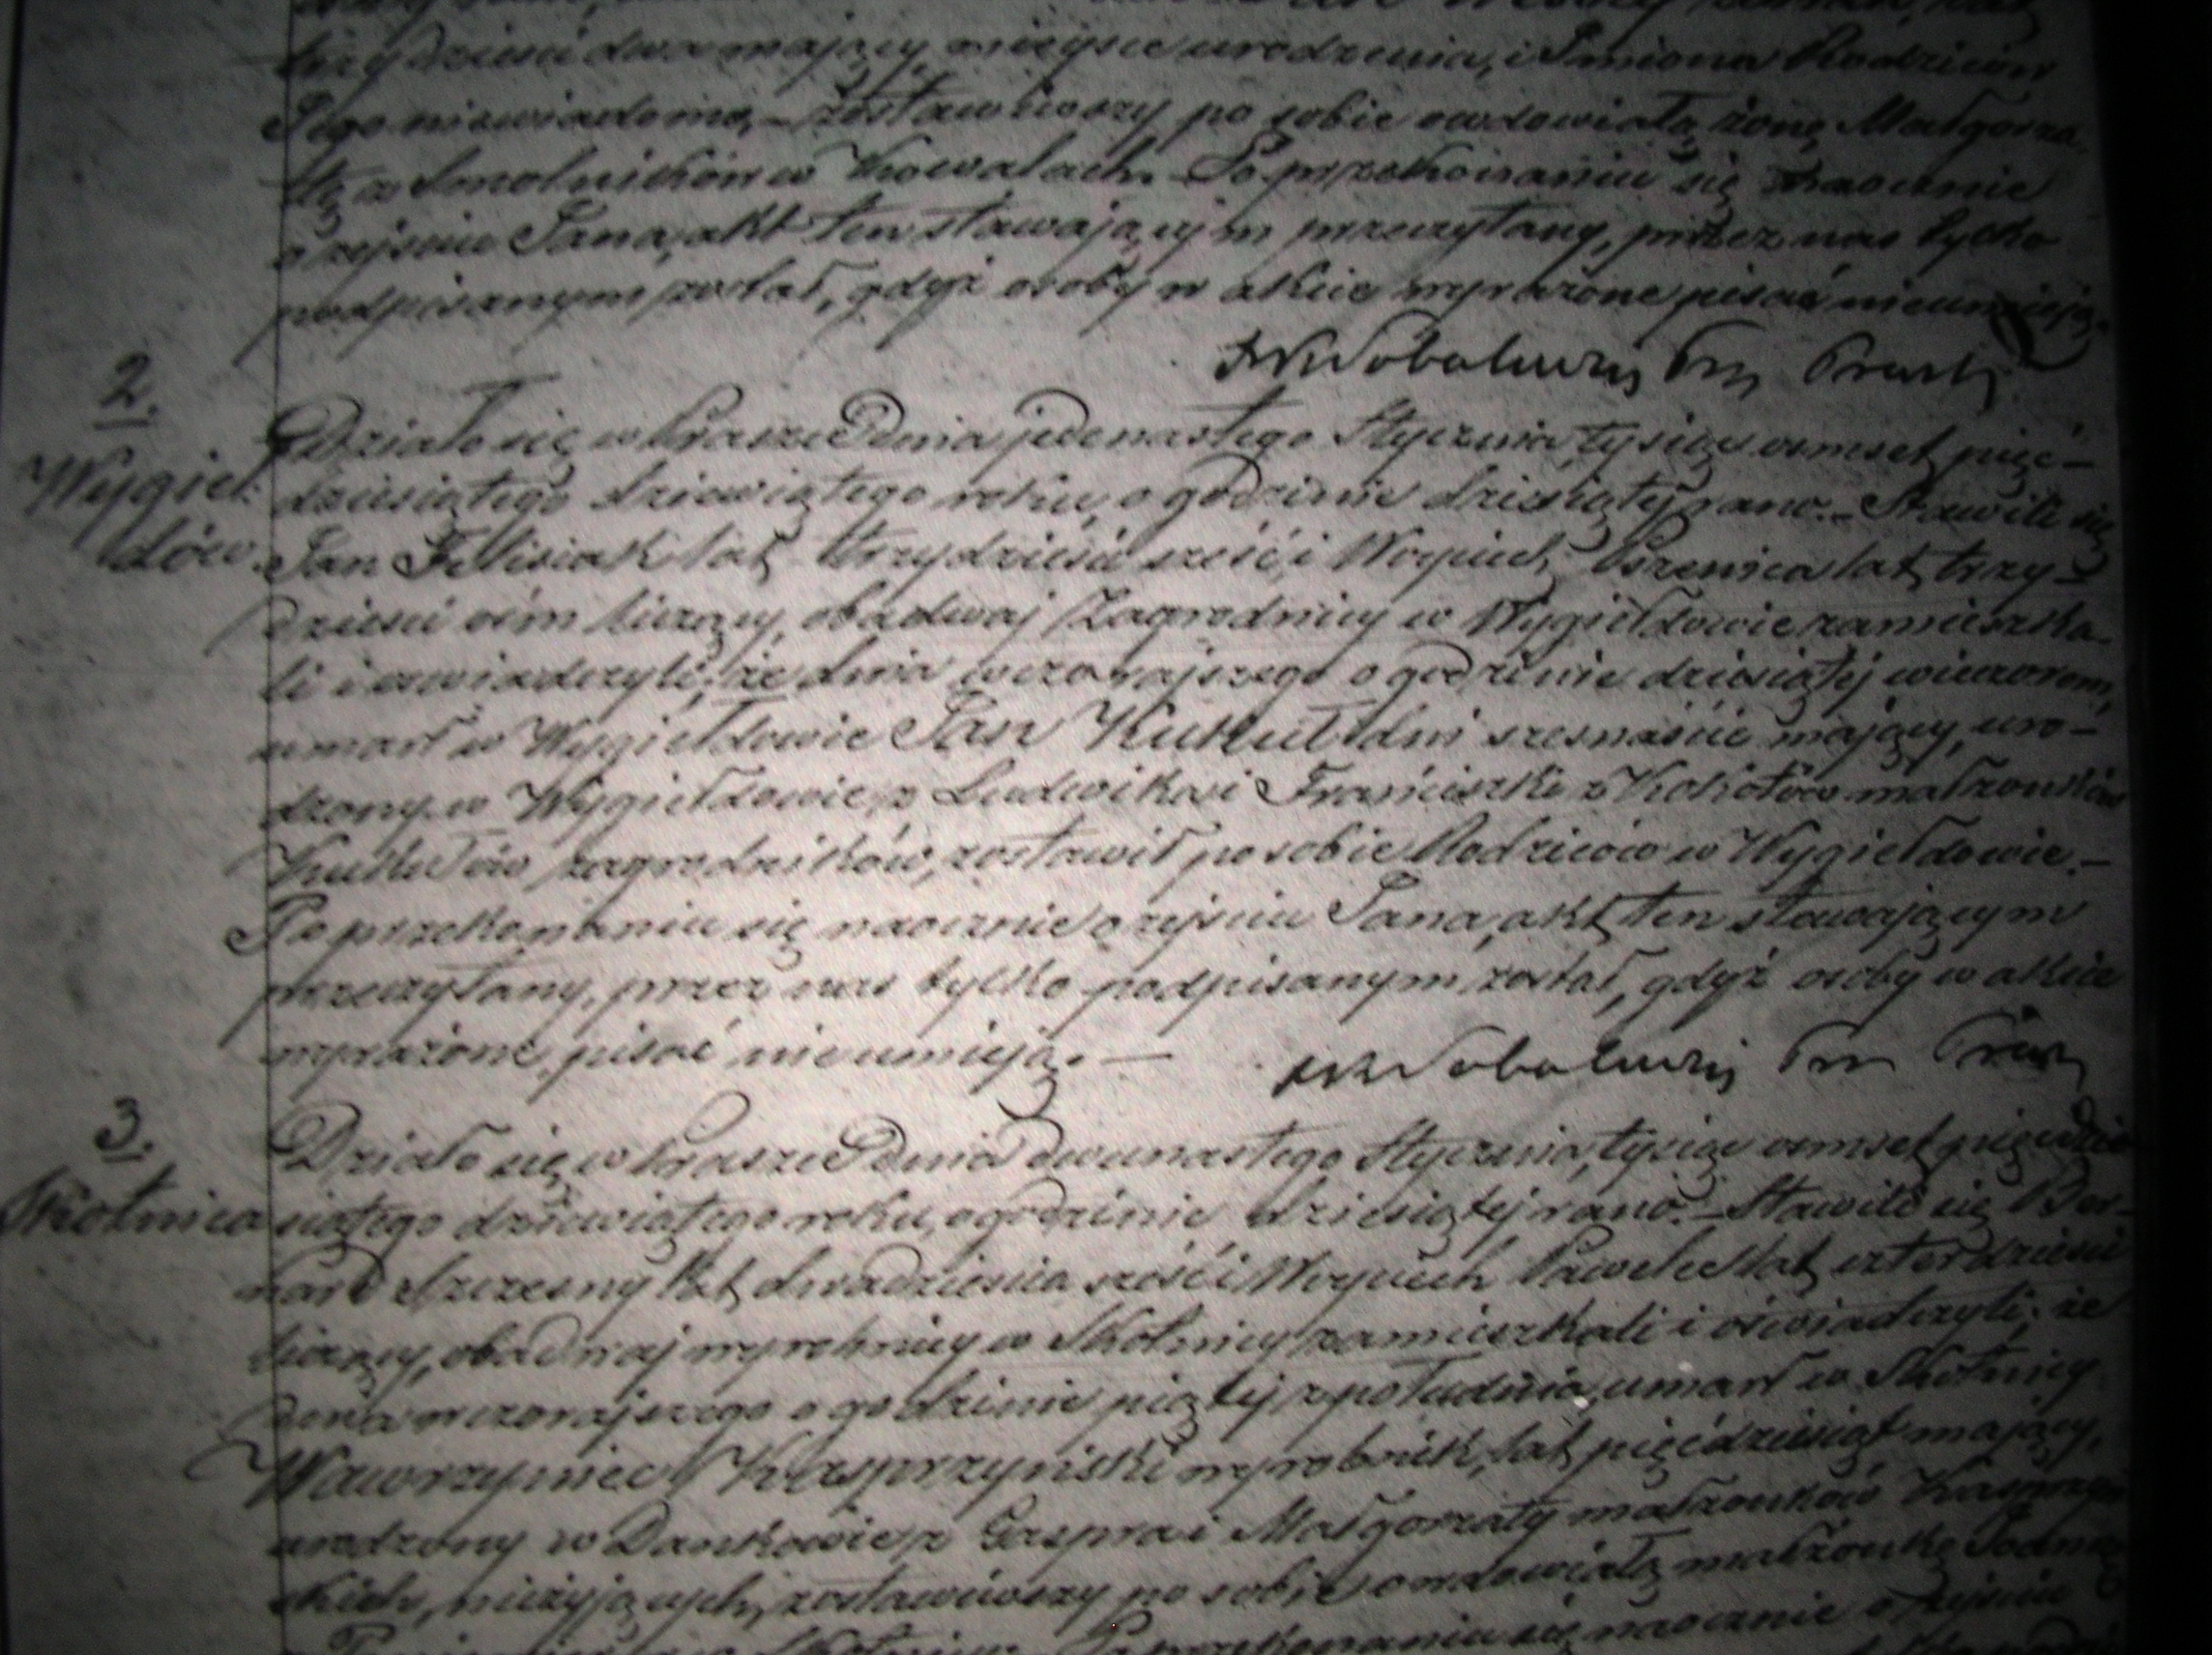 trzydzieści dwa mający, miejsce urodzenia, i Imiona Rodziców
Jego niewiadome, – zostawiwszy po sobie owdowiałą żonę Małgorza-
tę z Smolników w Kowalach. – Po przekonaniu się naocznie
o zejściu Jana, akt ten stawającym przeczytany, przez nas tylko
podpisanym został, gdyż osoby w akcie wyrażone pisać nieumieją.
2.
Wygieł-
dów.
Działo się w Praszce Dnia jedenastego Stycznia tysiąc ośmset pięć-
dziesiątego dziewiątego roku, o godzinie dziesiątej rano. – Stawili się
Jan Felisiak lat trzydzieści sześć i Woyciech Pszenica lat trzy-
dzieści ośm liczący, obadwaj Zagrodnicy w Wygiełdowie zamieszka-
li i oświadczyli; że dnia wczorajszego o godzinie dziesiątej wieczorem,
umarł w Wygiełdowie Jan Kukuł dni szesnaście mający, uro-
dzony w Wygiełdowie, z Ludwika i Franciszki z Kokotów małżonków
Kukułów zagrodników, zostawił po sobie Rodziców w Wygiełdowie. –
Po przekonaniu się naocznie o zejściu Jana, akt ten stawającym
przeczytany, przez nas tylko podpisanym został, gdyż osoby w akcie
wyrażone pisać nieumieją. –
3.
Skotnica
Działo się w Praszce Dnia dwunastego Stycznia, tysiąc ośmset pięćdzie-
siątego dziewiątego roku, o godzinie dziesiątej rano. – Stawili się Ber-
nard Szczesny lat dwadzieścia sześć i Woyciech Pawelec lat czterdzieści
liczący, obadwaj wyrobnicy w Skotnicy zamieszkali i oświadczyli; że
dnia wczorajszego o godzinie piątej z południa, umarł w Skotnicy
Wawrzyniec Kasprzyński wyrobnik, lat pięćdziesiąt mający,
urodzony w Dankowie, z Gaspra i Małgorzaty małżonków Kasprzyń-
skich, nieżyjących, zostawiwszy po sobie owdowiałą małżonkę
Po przekonaniu się naocznie o zejściu